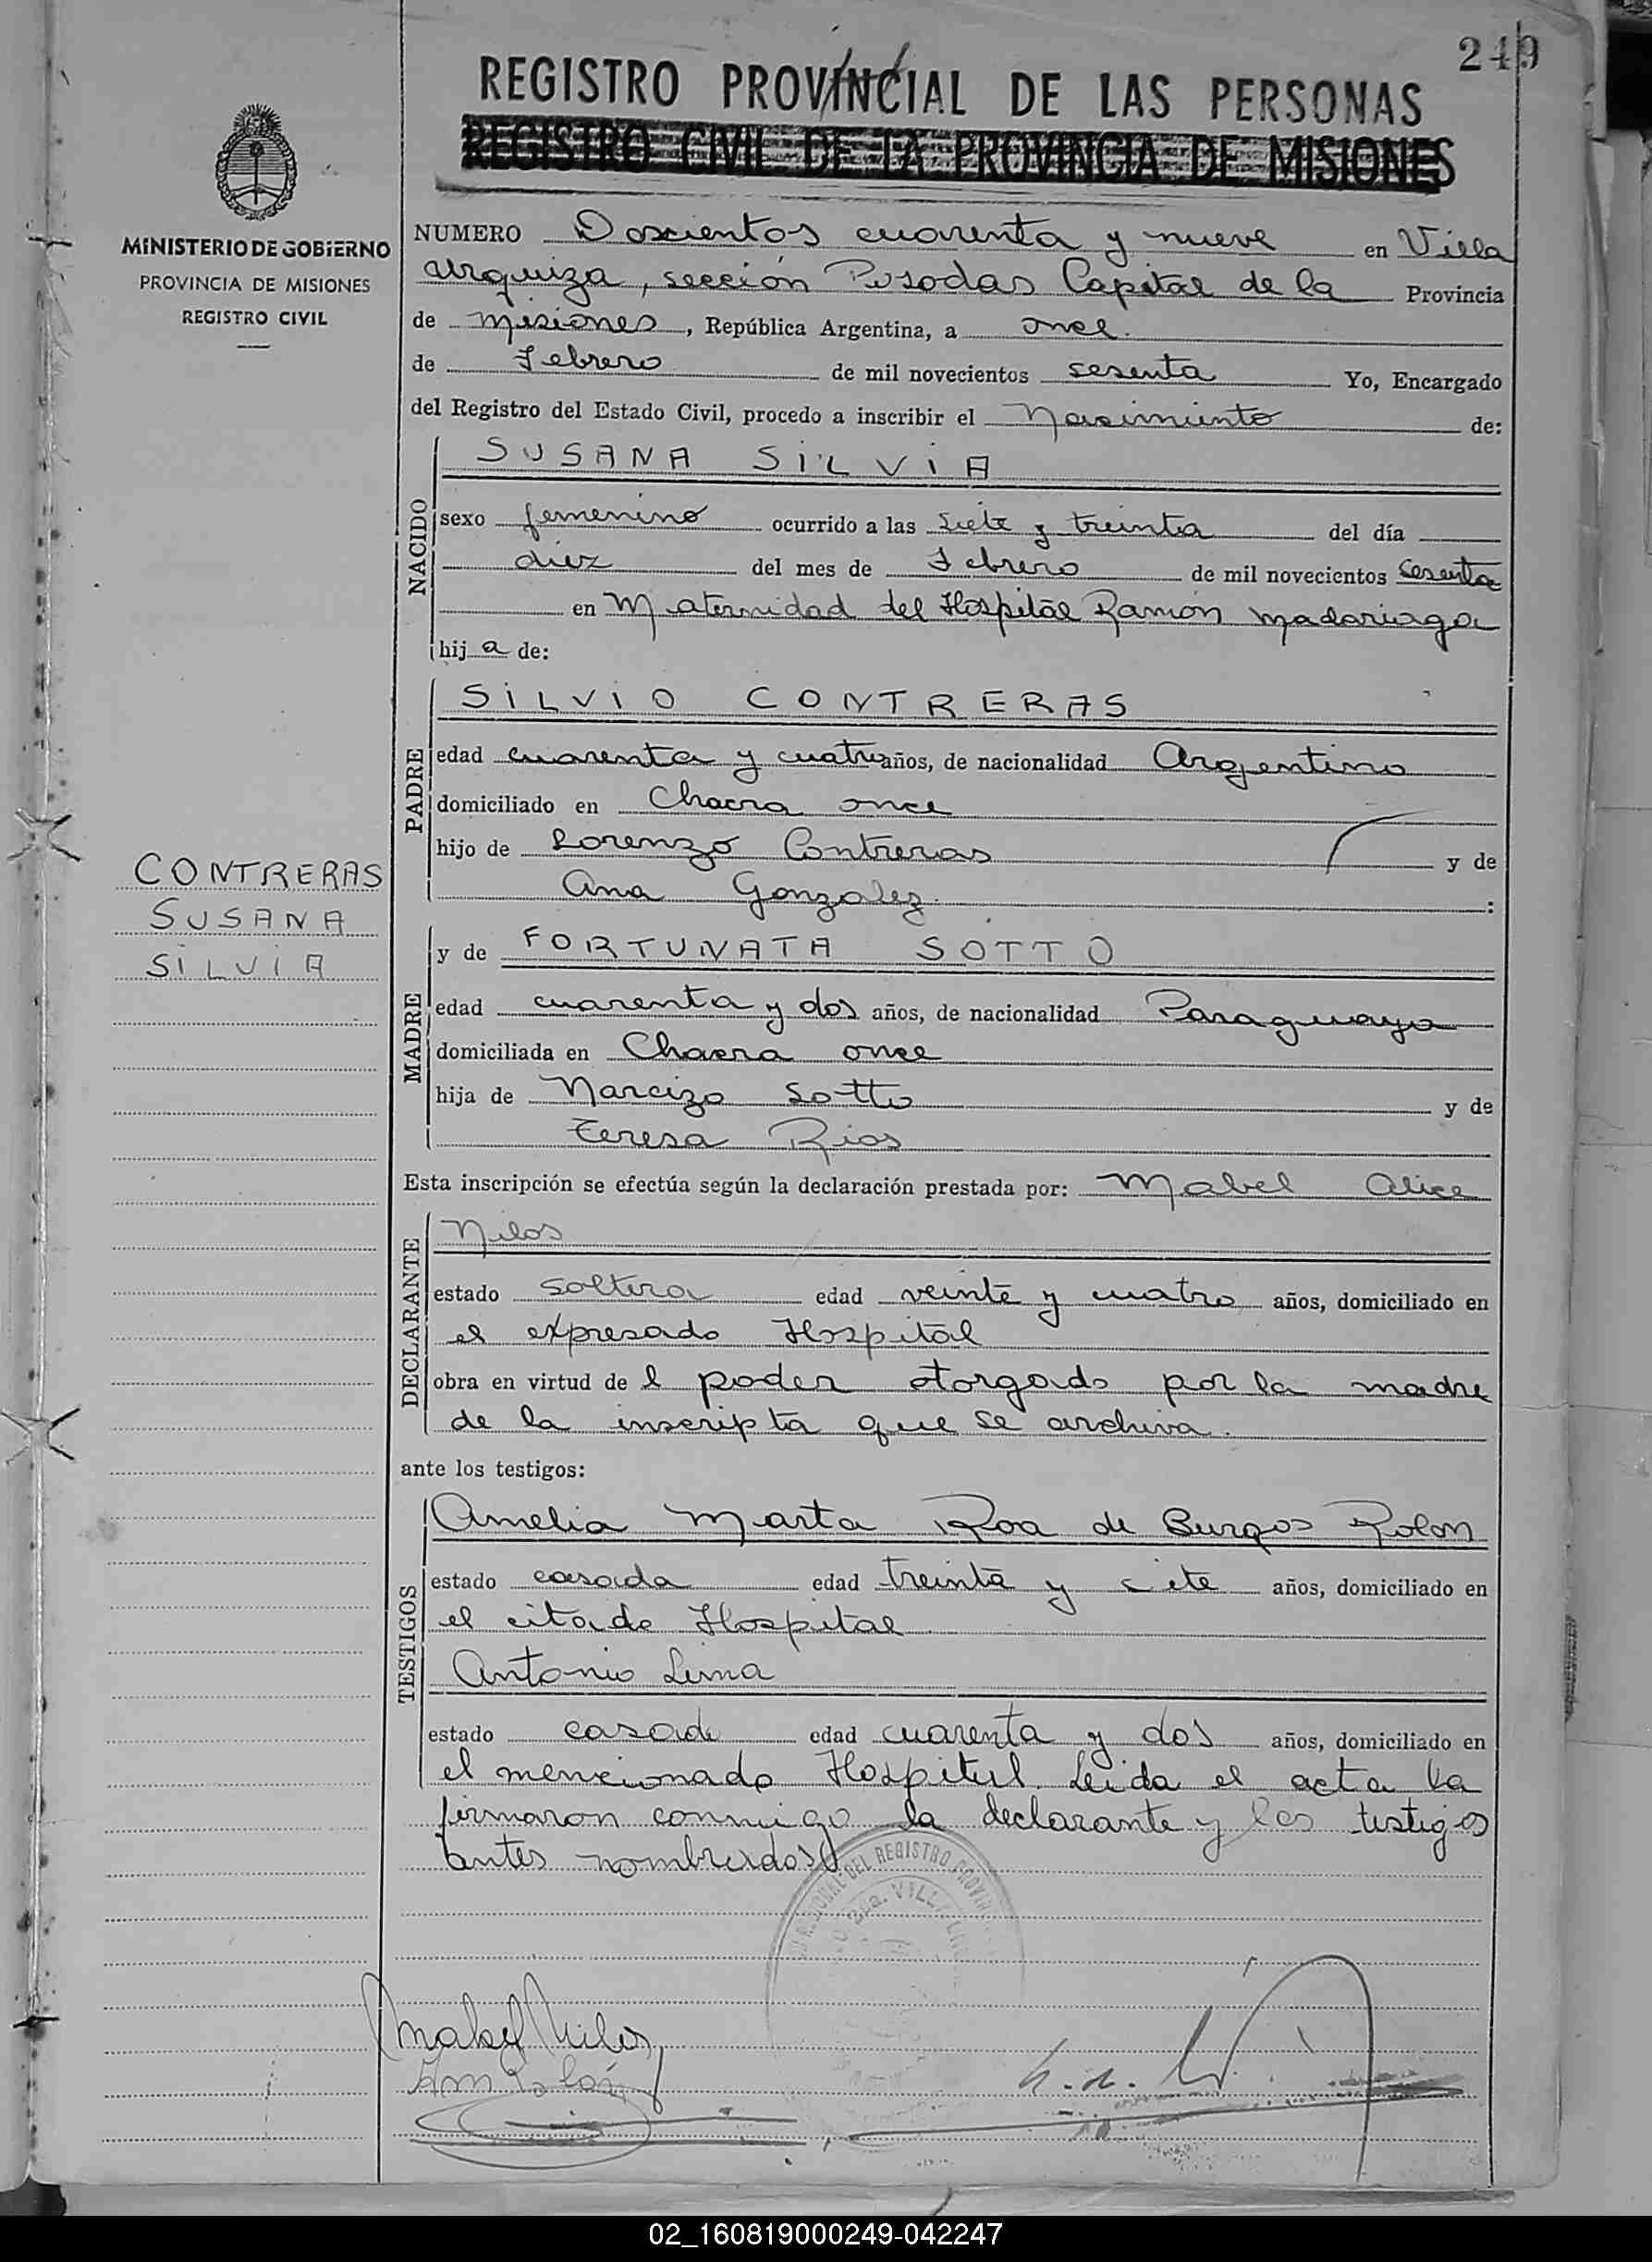 249
REGISTRO PROVINCIAL DE LAS PERSONAS
REGISTRO CIVIL DE LA PROVINCIA DE MISIONES
MINISTERIO DE GOBIERNO
PROVINCIA DE MISIONES
REGISTRO CIVIL
NUMERO Doscientos cuarenta y nueve en Villa
Urquiza, sección Posadas Capital de la Provincia
de Misiones, República Argentina, a once.
de Febrero de mil novecientos sesenta Yo, Encargado
del Registro del Estado Civil, procedo a inscribir el Nacimiento de:
NACIDO
SUSANA SILVIA
sexo femenino ocurrido a las siete y treinta del día
diez del mes de Febrero de mil novecientos sesenta
en Maternidad del Hospital Ramón Madariaga
hij a de:
PADRE
SILVIO CONTRERAS
edad cuarenta y cuatro años, de nacionalidad Argentino
domiciliado en Chacra once
hijo de Lorenzo Contreras y de
Ana Gonzalez. :
CONTRERAS
SUSANA
SILVIA
MADRE
y de FORTUNATA SOTTO
edad cuarenta y dos años, de nacionalidad Paraguaya
domiciliada en Chacra once
hija de Narcizo Sotto y de
Teresa Rios
Esta inscripción se efectúa según la declaración prestada por: Mabel Alice
DECLARANTE
Nilos
estado soltera edad veinte y cuatro años, domiciliado en
el expresado Hospital
obra en virtud de l poder otorgado por la madre
de la inscripta que se archiva.
ante los testigos:
TESTIGOS
Amelia Marta Roa de Burgos Rolon
estado casada edad treinta y siete años, domiciliado en
el citado Hospital
Antonio Lima
estado casado edad cuarenta y dos años, domiciliado en
el mencionado Hospital. Leida el acta la
firmaron conmigo la declarante y los testigos
antes nombrados
DEL REGISTRO
VILLA
Mabel Nilos
02_160819000249-042247